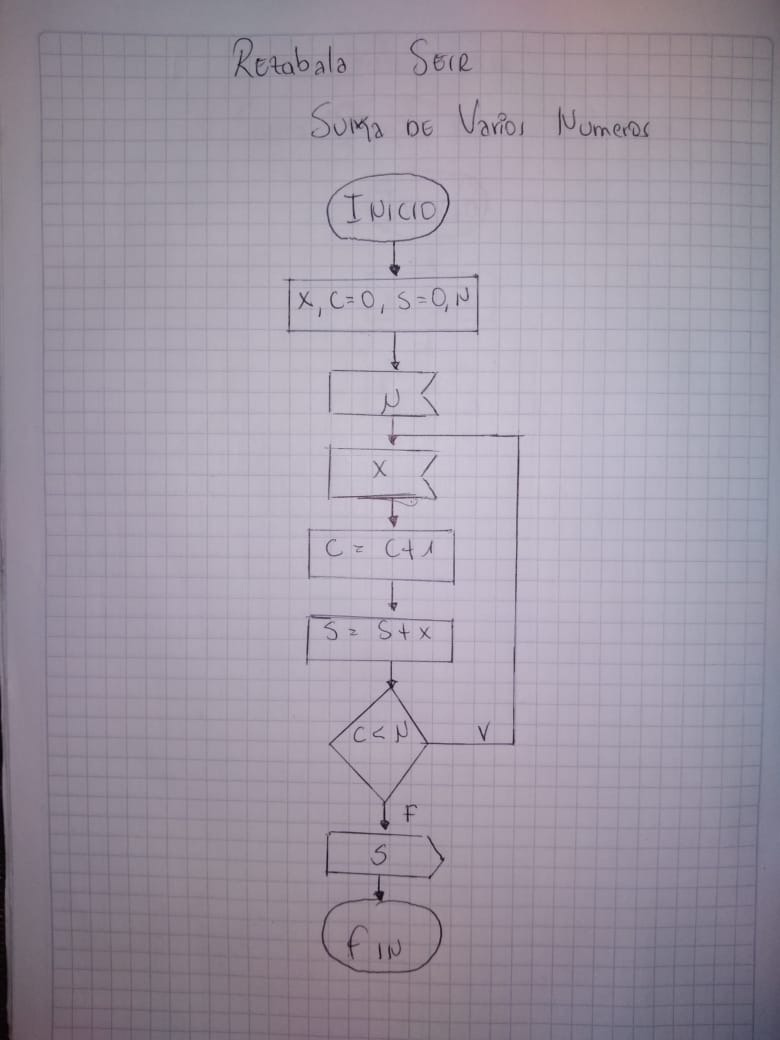 Retabala Seir
Suma de Varios Numeros
INICIO
X, C=0, S=0, N
N
X
C = C+1
S = S+x
C < N
V
F
S
fIN